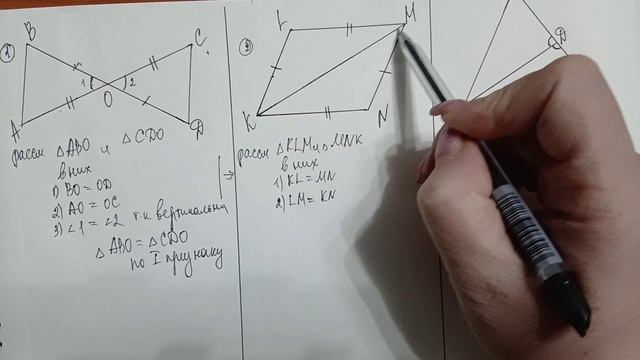 1
B
C
1
2
O
A
D
рассм △ABO и △CDO
В них
1) BO = OD
2) AO = OC
3) ∠1 = ∠2 т.к вертикальны
△ABO = △CDO
по I признаку
2
L
M
K
N
рассм △KLM и △MNK
В них
1) KL = MN
2) LM = KN
D